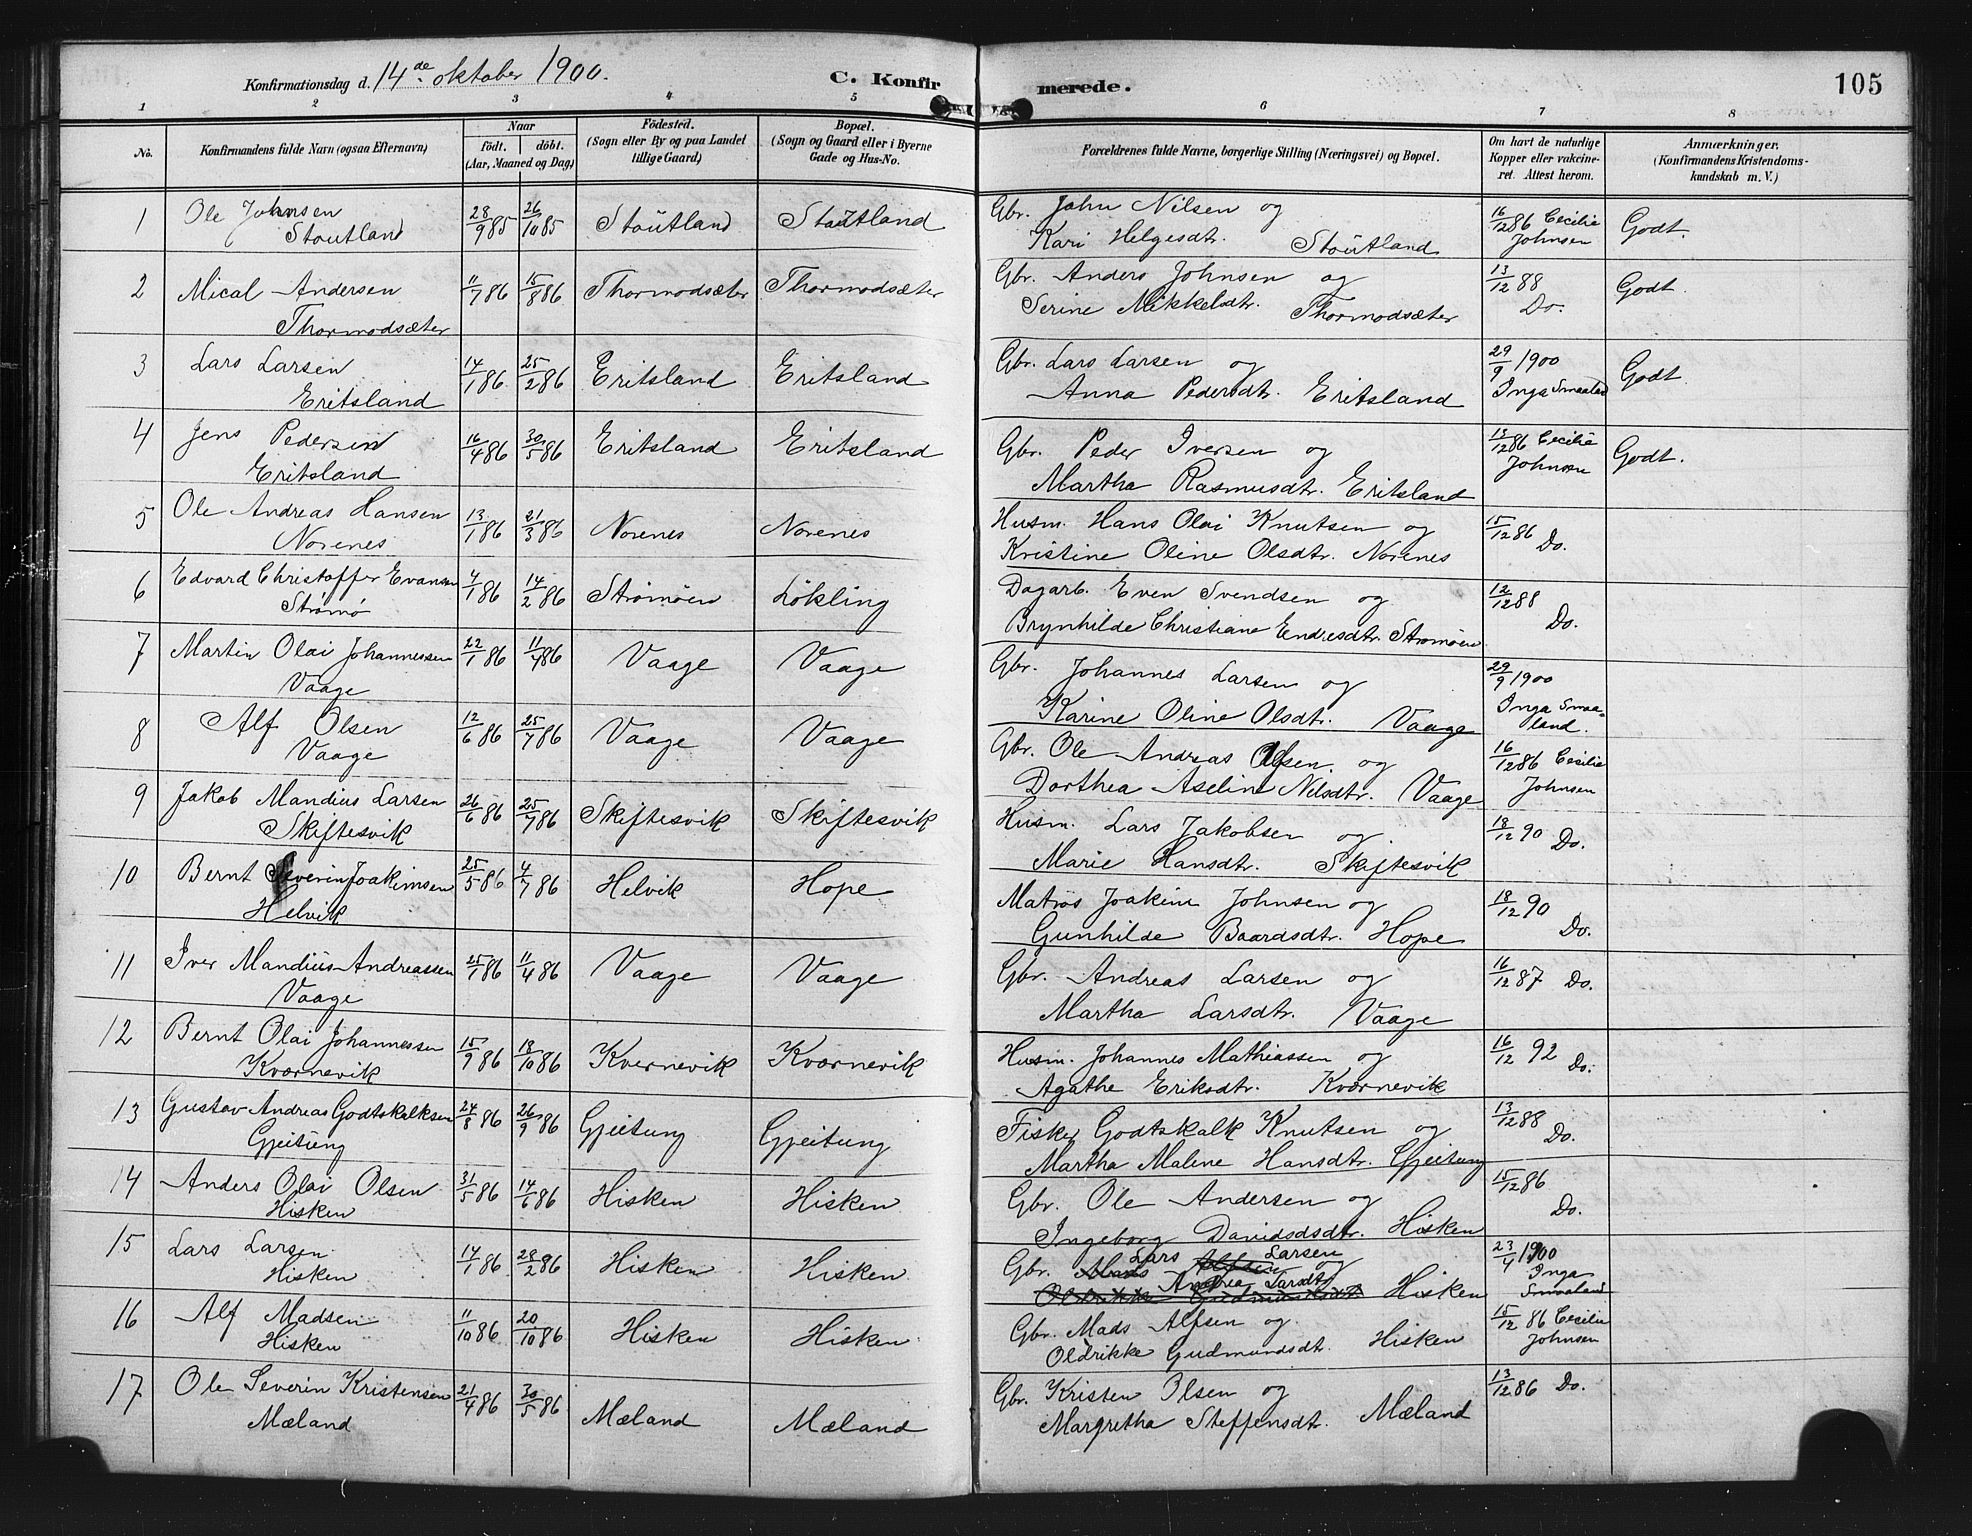 Konfirmationsdag d. 14de oktober 1900.
C. Konfirmerede.
105
1 2 3 4 5 6 7 8
No.
Konfirmandens fulde Navn (ogsaa Efternavn)
Naar
født. døbt.
(Aar, Maaned og Dag)
Fødested.
(Sogn eller By og paa Landet
tillige Gaard)
Bopæl.
(Sogn og Gaard eller i Byerne
Gade og Hus-No.
Forældrenes fulde Navne, borgerlige Stilling (Næringsvei) og Bopæl.
Om havt de naturlige
Kopper eller vakcine-
ret. Attest herom.
Anmærkninger.
(Konfirmandens Kristendoms-
kundskab m. V.)
1 Ole Johnsen Stoutland 28/9 85 26/10 85 Stoutland Stoutland Gbr. John Nilsen og Kari Helgesdtr. Stoutland 16/12 86 Cecilie Johnsen Godt.
2 Mical Andersen Thormodsæter 11/7 86 15/8 86 Thormodsæter Thormodsæter Gbr. Anders Johnsen og Serine Mikkelsdtr. Thormodsæter 13/12 88 Do. Godt.
3 Lars Larsen Eritsland 14/1 86 25/2 86 Eritsland Eritsland Gbr. Lars Larsen og Anna Pedersdtr. Eritsland 29/9 1900 Inga Smaaland Godt.
4 Jens Pedersen Eritsland 16/4 86 30/5 86 Eritsland Eritsland Gbr. Peder Iversen og Martha Rasmusdtr. Eritsland 13/12 86 Cecilie Johnsen Godt.
5 Ole Andreas Hansen Norenes 13/1 86 21/3 86 Norenes Norenes Husm. Hans Olai Knutsen og Kristine Oline Olsdtr. Norenes 15/12 86 Do.
6 Edvard Christoffer Evansen Strømø 4/1 86 14/2 86 Strømøen Løkling Dagarb. Even Svendsen og Brynhilde Christiane Endresdtr. Strømøen 12/12 88 Do.
7 Martin Olai Johannessen Vaage 22/1 86 11/4 86 Vaage Vaage Gbr. Johannes Larsen og Karine Oline Olsdtr. Vaage 29/9 1900 Inga Smaaland.
8 Alf Olsen Vaage 12/6 86 25/7 86 Vaage Vaage Gbr. Ole Andreas og Dorthea Aseline Nilsdtr. Vaage 16/12 86 Cecilie Johnsen
9 Jakob Mandius Larsen Skiftesvik 26/6 86 25/7 86 Skiftesvik Skiftesvik Husm. Lars Jakobsen og Marie Hansdtr. Skiftesvik 18/12 90 Do.
10 Bernt Severin Joakimsen Helvik 25/5 86 4/7 86 Helvik Hope Matros Joakim Johnsen og Gunhilde Baardsdtr. Hope 18/12 90 Do.
11 Iver Mandius Andreassen Vaage 25/1 86 11/4 86 Vaage Vaage Gbr. Andreas Larsen og Martha Larsdtr. Vaage 16/12 87 Do.
12 Bernt Olai Johannessen Kværnevik 15/9 86 18/10 86 Kvernevik Kværnevik Husm. Johannes Mathiassen og Agathe Eriksdtr. Kværnevik 16/12 92 Do.
13 Gustav Andreas Godtskalksen Gjeitung 24/8 86 26/9 86 Gjeitung Gjeitung Fisker Godtskalk Knutsen og Martha Malene Hansdtr. Gjeitung 13/12 88 Do.
14 Anders Olai Olsen Hisken 31/5 86 14/6 86 Hisken Hisken Gbr. Ole Andersen og Ingeborg Davidsdsdtr. Hisken 15/12 86 Do.
15 Lars Larsen Hisken 14/1 86 28/2 86 Hisken Hisken Gbr. Mads Alfsen Lars Larsen og Oldrikke Gudmundsdt. Andrea Larsdtr Hisken 23/4 1900 Inga Smaaland
16 Alf Madsen Hisken 11/10 86 20/10 86 Hisken Hisken Gbr. Mads Alfsen og Oldrikke Gudmundsdt. Hisken 15/12 86 Cecilie Johnsen
17 Ole Severin Kristensen Mæland 21/4 86 30/5 86 Mæland Mæland Gbr. Kristen Olsen og Margretha Steffensdtr. Mæland 13/12 86 Do.